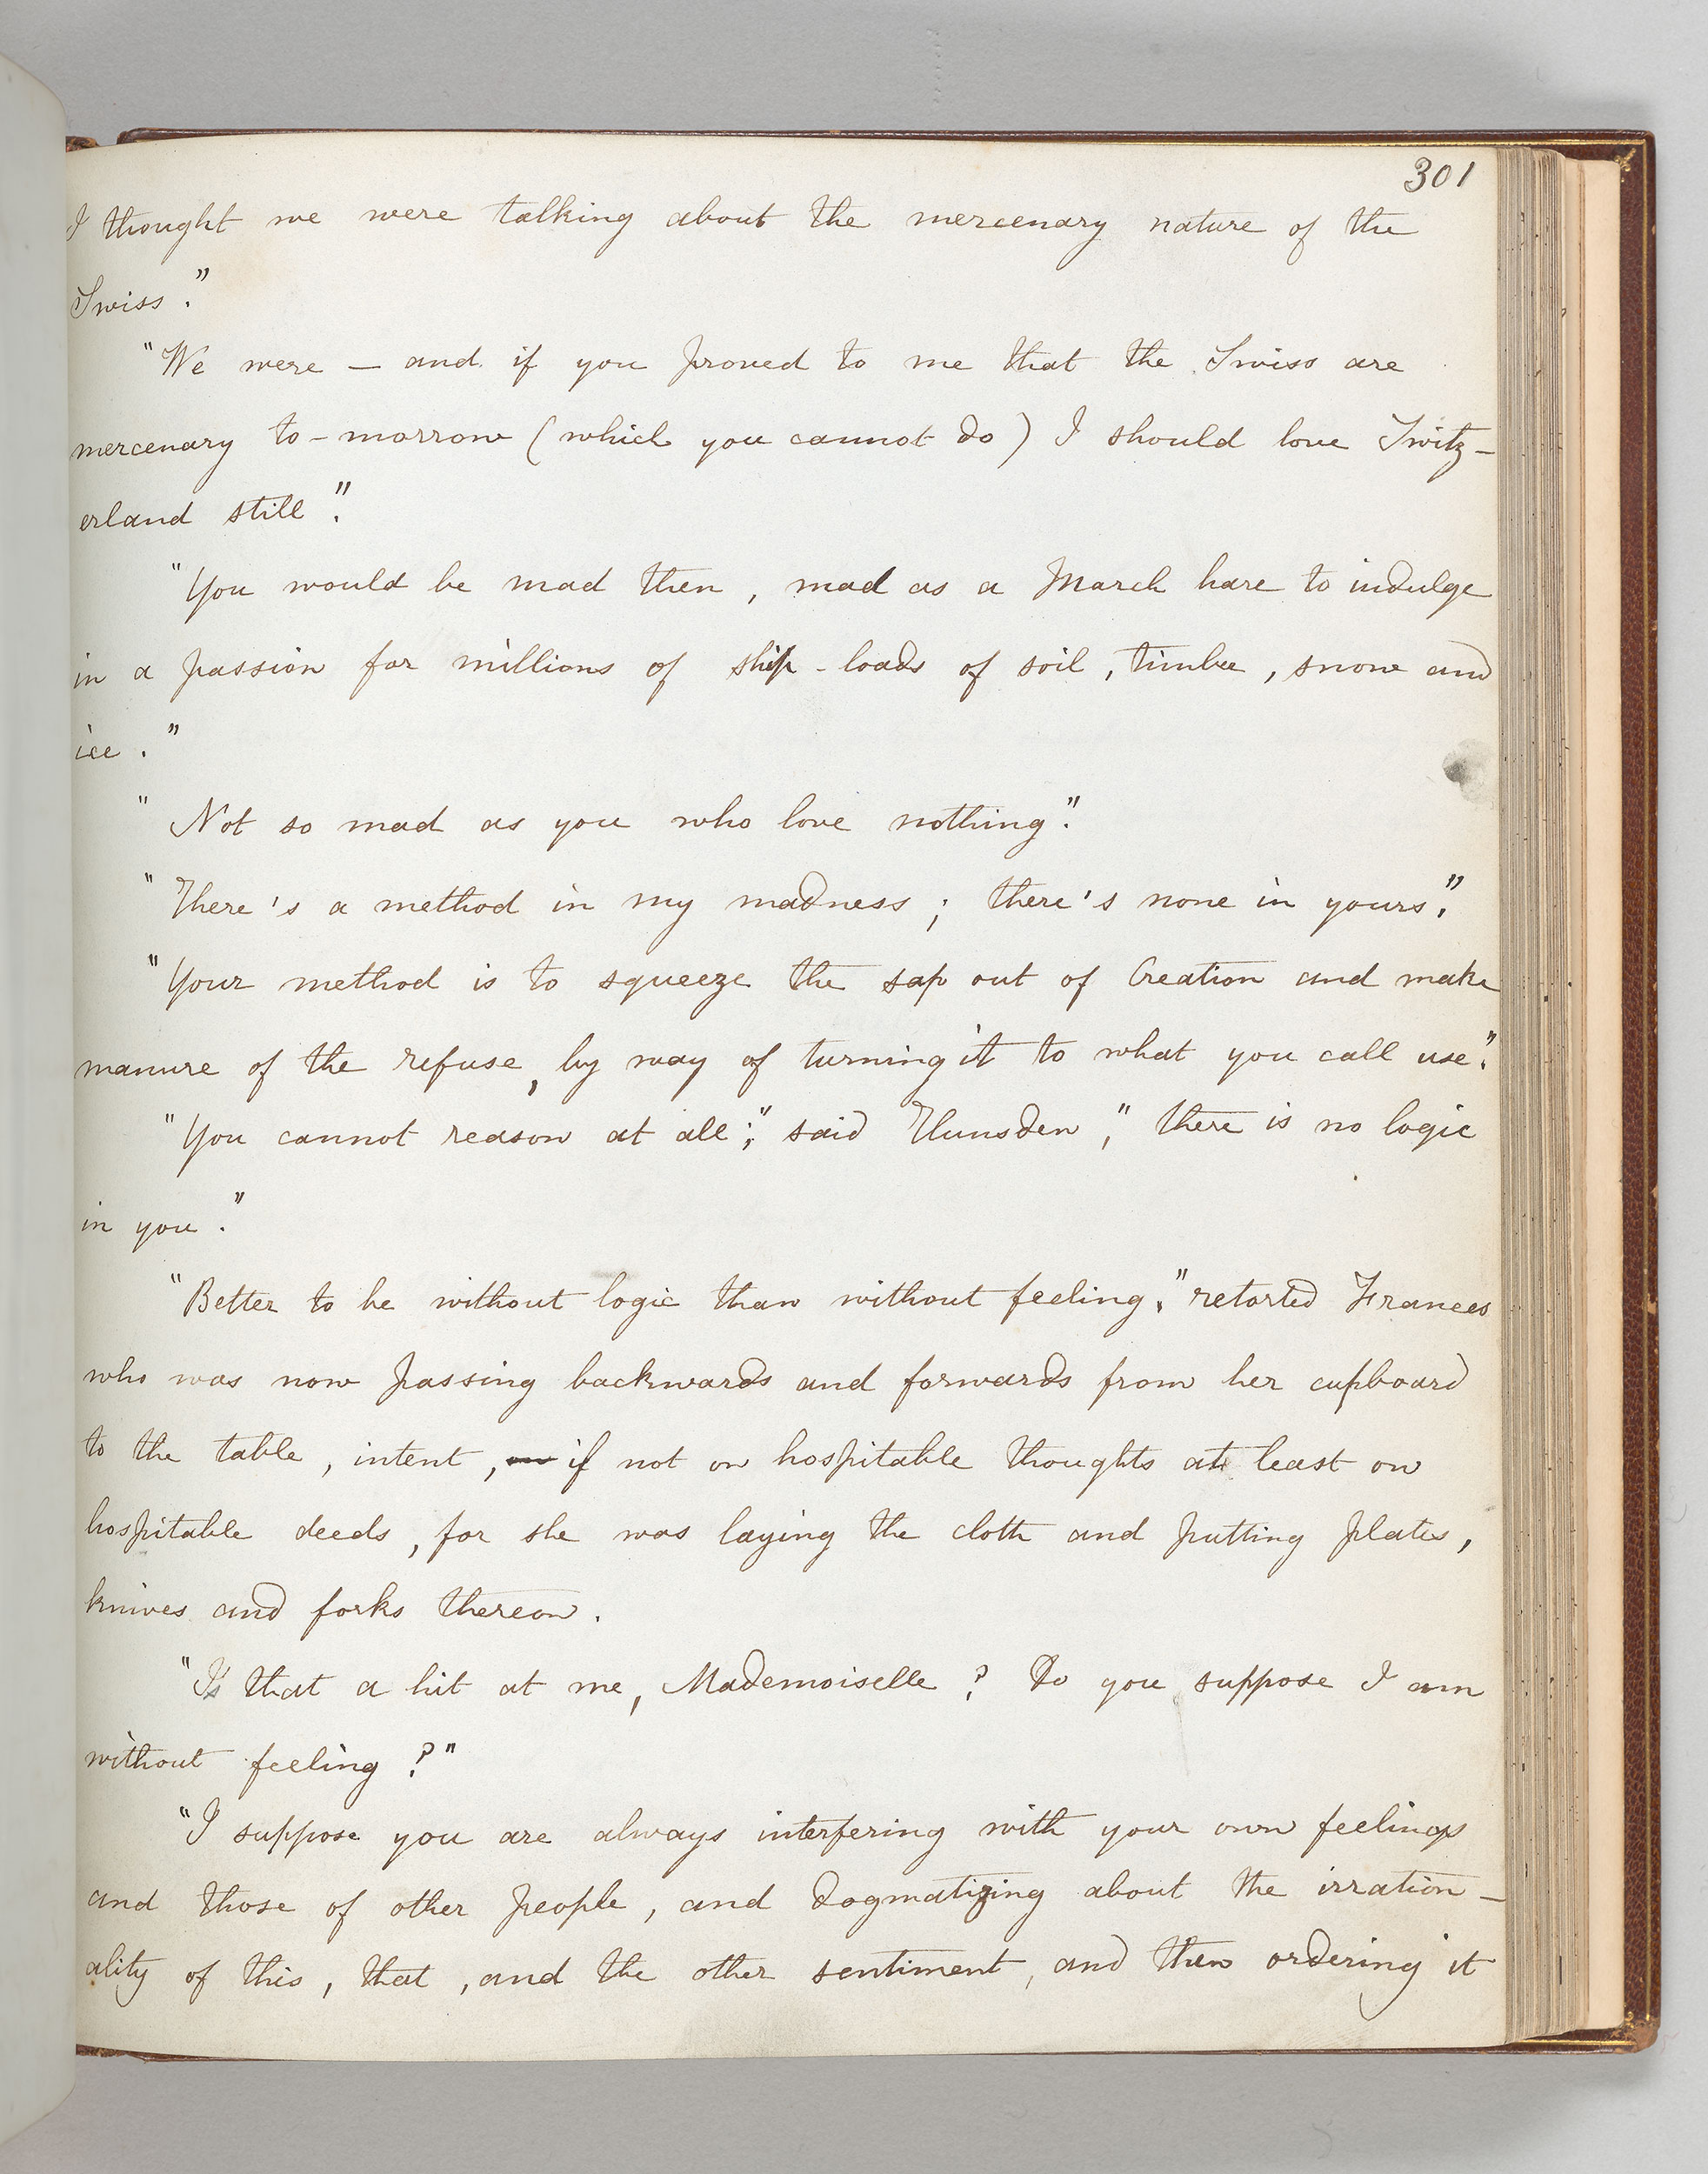 301
I thought we were talking about the mercenary nature of the
Swiss."
"We were — and if you proved to me that the Swiss are
mercenary to-morrow (which you cannot do) I should love Switz-
erland still."
"You would be mad then, mad as a March hare to indulge
in a passion for millions of ship-loads of soil, timber, snow and
ice."
"Not so mad as you who love nothing."
"There's a method in my madness; there's none in yours."
"Your method is to squeeze the sap out of Creation and make
manure of the refuse, by way of turning it to what you call use."
"You cannot reason at all;" said Hunsden, "there is no logic
in you."
"Better to be without logic than without feeling." retorted Frances
who was now passing backwards and forwards from her cupboard
to the table, intent, if not on hospitable thoughts at least on
hospitable deeds, for she was laying the cloth and putting plates,
knives and forks thereon.
"Is that a hit at me, Mademoiselle? Do you suppose I am
without feeling?"
"I suppose you are always interfering with your own feelings
and those of other people, and dogmatizing about the irration-
ality of this, that, and the other sentiment, and then ordering it